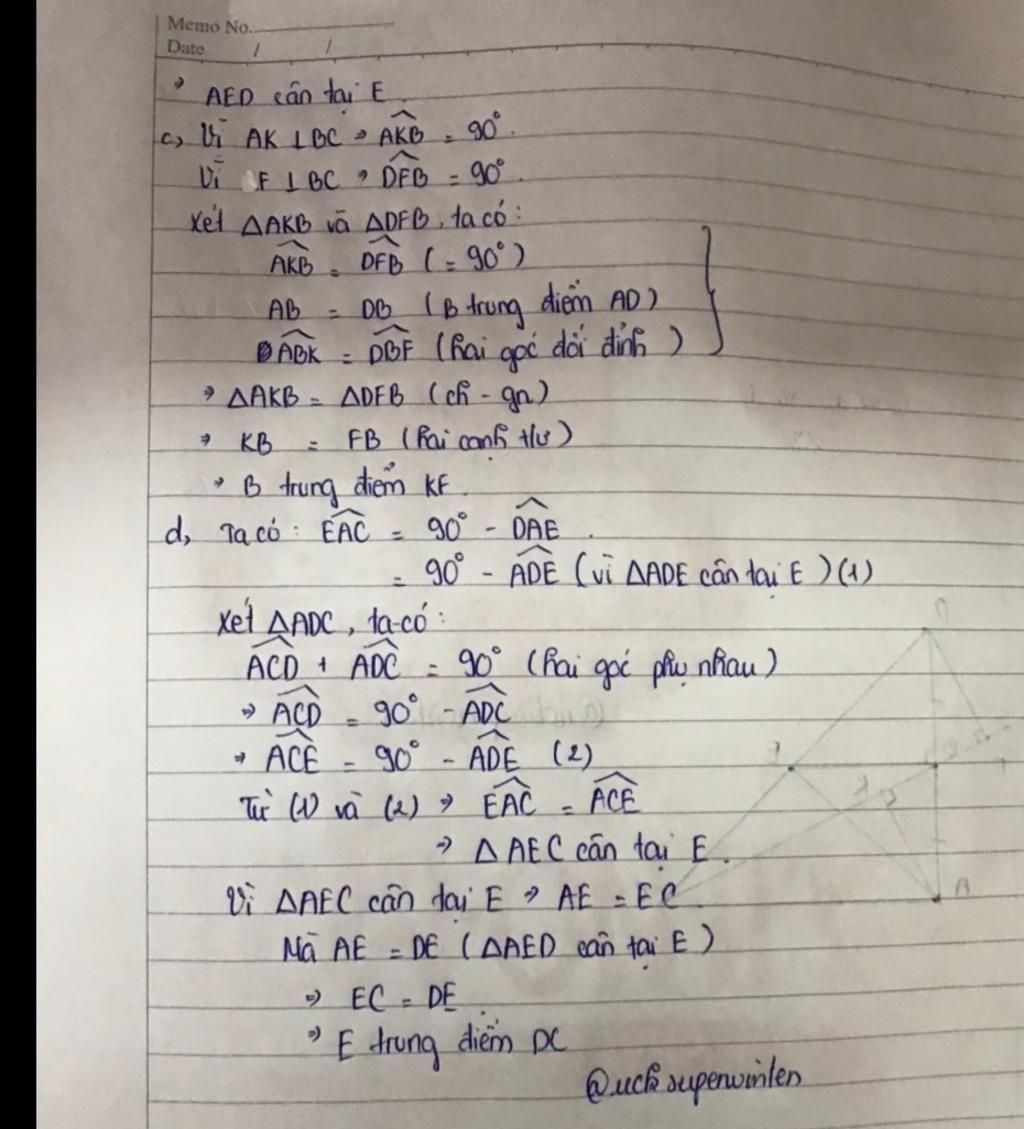 Memo No.
Date / /
→ AED cân tại E
c, Vì AK ⊥ BC → \widehat{AKB} = 90°.
Vì F ⊥ BC → \widehat{DFB} = 90°.
Xét ΔAKB và ΔDFB, ta có:
\widehat{AKB} = \widehat{DFB} (= 90°)
AB = DB (B trung điểm AD)
\widehat{ABK} = \widehat{DBF} (hai góc đối đỉnh)
→ ΔAKB = ΔDFB (ch - gn)
→ KB = FB (hai cạnh t/ư)
→ B trung điểm KF.
d, Ta có: \widehat{EAC} = 90° - \widehat{DAE}.
= 90° - \widehat{ADE} (vì ΔADE cân tại E) (1)
Xét ΔADC, ta có:
\widehat{ACD} + \widehat{ADC} = 90° (hai góc phụ nhau)
⇒ \widehat{ACD} = 90° - \widehat{ADC}
→ \widehat{ACE} = 90° - \widehat{ADE} (2)
Từ (1) và (2) ⇒ \widehat{EAC} = \widehat{ACE}
⇒ ΔAEC cân tại E.
Vì ΔAEC cân tại E ⇒ AE = EC.
Mà AE = DE (ΔAED cân tại E)
⇒ EC = DE
⇒ E trung điểm DC